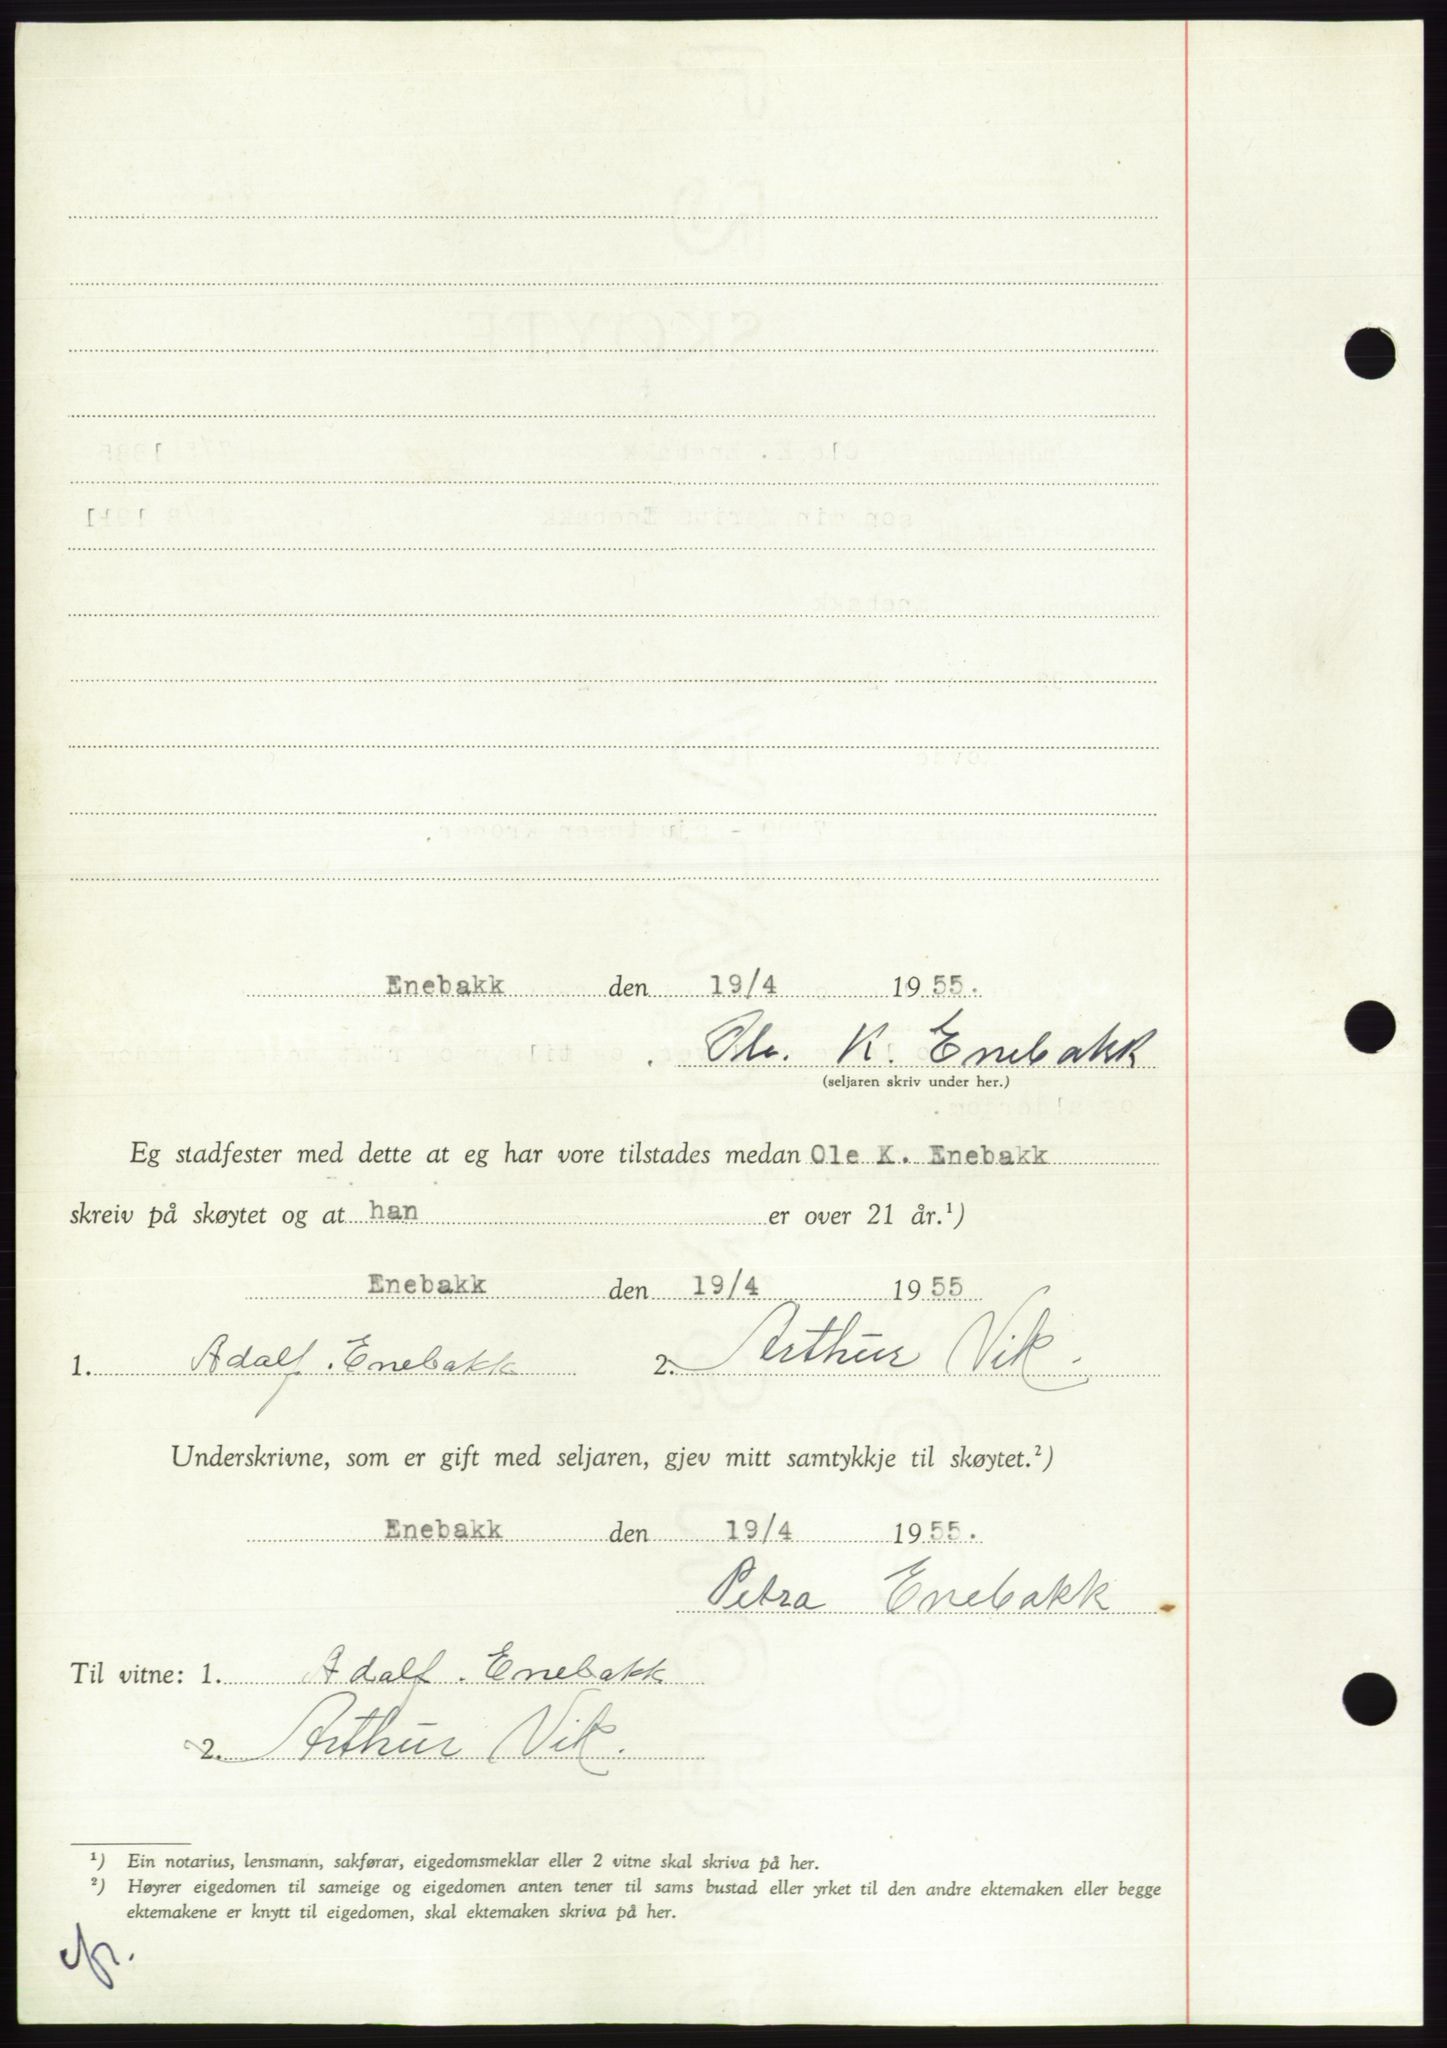 Enebakk den 19/4 1955.
Ole. K. Enebakk
(seljaren skriv under her.)
Eg stadfester med dette at eg har vore tilstades medan Ole K. Enebakk
skreiv på skøytet og at han er over 21 år.¹)
Enebakk den 19/4 1955
1. Adalf. Enebakk 2. Arthur Vik.
Underskrivne, som er gift med seljaren, gjev mitt samtykkje til skøytet.²)
Enebakk den 19/4 1955.
Petra Enebakk
Til vitne: 1. Adalf. Enebakk
2. Arthur Vik.
¹) Ein notarius, lensmann, sakførar, eigedomsmeklar eller 2 vitne skal skriva på her.
²) Høyrer eigedomen til sameige og eigedomen anten tener til sams bustad eller yrket til den andre ektemaken eller begge
ektemakene er knytt til eigedomen, skal ektemaken skriva på her.